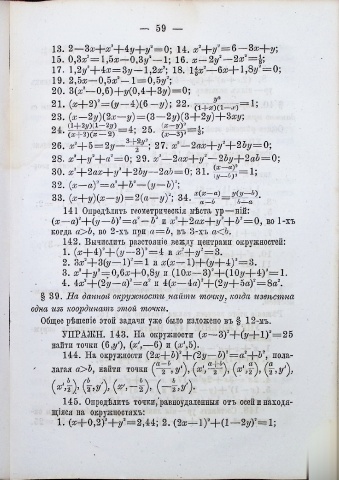 — 59 —
13. 2—3x+x²+4y+y²=0; 14. x²+y²=6—3x+y;
15. 0,3x²=1,5x—0,3y²—1; 16. x—2y²—2x²=⅛;
17. 1,2y²+4x=3y—1,2x²; 18. 1⅘x²—6x+1,8y²=0;
19. 2,5x—0,5x²—1=0,5y²;
20. 3(x²—0,6)+y(0,4+3y)=0;
21. (x+2)²=(y—4)(6—y); 22. y²/(1+x)(1—x)=1;
23. (x—2y)(2x—y)=(3—2y)(3+2y)+3xy;
24. (1+2y)(1—2y)/(x+2)(x—2)=4; 25.
26. x²+5=2y—(3+2y²)/2; 27. x²—2ax+y²+2by=0;
28. x²+y²+a²=0; 29. x²—2ax+y²—2by+2ab=0;
30. x²+2ax+y²+2by—2ab=0; 31. (x—a)²/(y—b)²=1;
32. (x—a)²=a²+b²—(y—b)²;
33. (x+y)(x—y)=2(a—y)²; 34. x(x—a)/b=y(y—b)/b—a.
141 Опредѣлить геометрическія мѣста ур—ній:
(x—a)²+(y—b)²=a²—b² и x²+2ax+y²+b²=0, во 1-хъ
когда a>b, во 2-хъ при a=b, въ 3-хъ a<b.
142. Вычислить разстояніе между центрами окружностей:
1. (x+4)²+(y—3)²=4 и x²+y²=3.
2. 3x²+3(y—1)²=1 и x(x—1)+(y+4)²=3.
3. x²+y²=0,6x+0,8y и (10x—3)²+(10y+4)²=1.
4. 4x²+(2y—a)²=a² и 4(x—4a)²+(2y+5a)²=8a².
§ 39. На данной окружности найти точку, когда извѣстна
одна изъ координатъ этой точки.
Общее рѣшеніе этой задачи уже было изложено въ § 12-мъ.
УПРАЖН. 143. На окружности (x—3)²+(y+1)²=25
найти точки (6,y′), (x′,—6) и (x′,5).
144. На окружности (2x+b)²+(2y—b)²=a²+b², пола-
лагая a>b, найти точки ((a—b)/2,y′), (x′,(a+b)/2), (x′,a/2), (a/2,y′),
(x′,b/2), (b/2,y′), (x′,—b/2), (—b/2,y′).
145. Опредѣлить точки, равноудаленныя отъ осей и находя-
щіяся на окружностяхъ:
1. (x+0,2)²+y²=2,44; 2. (2x—1)²+(1—2y)²=1;